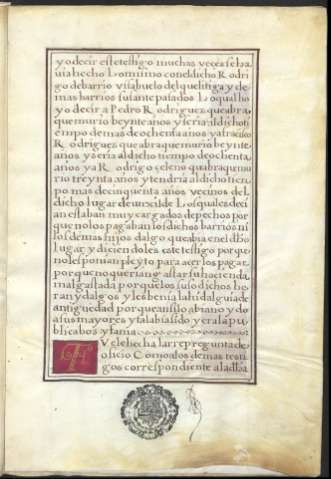 yo decir este testigo muchas veçes se ha
uia hecho Lo mismo con el dicho Rodri
go de barrio visabuelo del que litiga y de
mas barrios sus antepasados Lo qual ho
yo decir a Pedro Rodriguez que abra
que murio beynte años y seria al dicho ti
empo de mas de ochenta años y a françisco
Rodriguez que abra que murio beynte
años y seria al dicho tiempo de ochenta
años y a Rodrigo çeleno que abra que mu
rio treynta años y tendria al dicho tien
po mas de çinquenta años veçinos del
dicho lugar de Los quales deçi
an estaban muy cargados de pechos por
que no los pagaban los dichos barrios ni
los demas hijosdalgo que abia en el dicho
lugar y diçiendoles este testigo por que
no les ponian pleyto para açerlos pagar
porque no querian gastar su haçienda
mal gastada porque los susodichos he
ran ydalgos y les benia la hidalguia de
antiguedad por que ansi lo abian oydo
a sus mayores y tal abia sido y era la pu
blica boz y fama
Fuele hecha la rrepregunta de
ofiçio Como a los demas testi
gos correspondiente a la dha